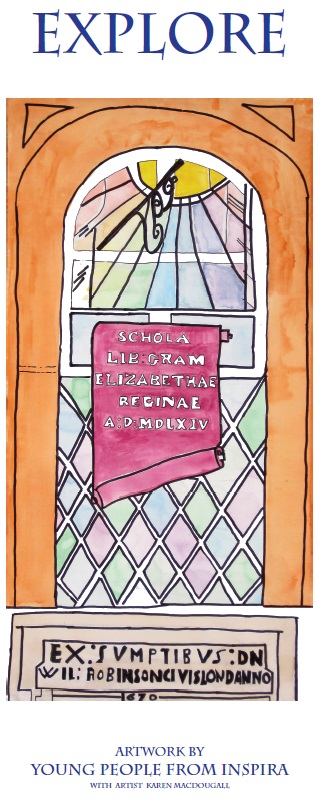 EXPLORE
SCHOLA
LIB:GRAM
ELIZABETHAE
REGINAE
A:D:MDLXIV
EX:SVMPTIBVS:DN
WIL: ROBINSONCIVISLONDANNO
1670
ARTWORK BY
YOUNG PEOPLE FROM INSPIRA
WITH ARTIST KAREN MACDOUGALL